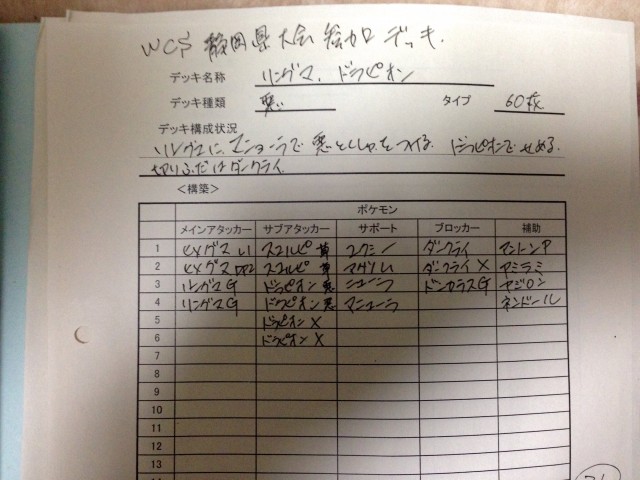 WCS 静岡県大会 参加 デッキ.
デッキ名称 リングマ、ドラピオン
デッキ種類 悪 タイプ 60枚
デッキ構成状況
リングマに、マニューラで 悪とくしゅをつける. ドラピオンでせめる.
切りふだはダークライ.
<構築>
ポケモン
メインアタッカー サブアタッカー サポート ブロッカー 補助
1 ヒメグマ スコルピ 草 ユクシー ダークライ
2 ヒメグマ スコルピ 草 ダークライX ヤミラミ
3 リングマG ドラピオン 悪 ニューラ ドンカラスG ヤジロン
4 リングマG ドラピオン 悪 マニューラ ネンドール
5 ドラピオン X
6 ドラピオン X
7
8
9
10
11
12
13